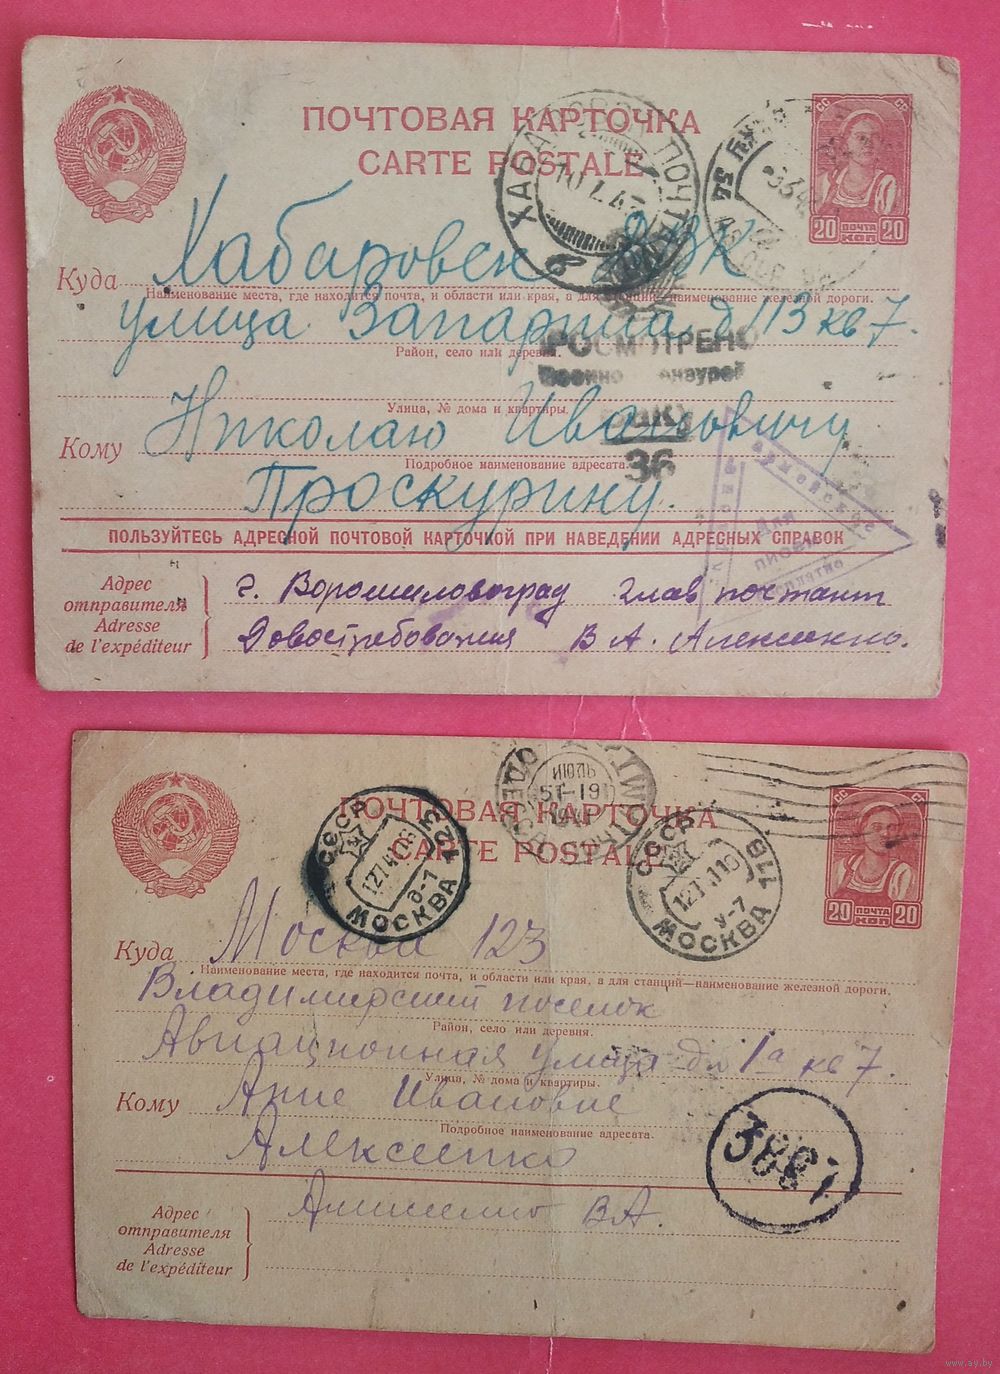 ПОЧТОВАЯ КАРТОЧКА
CARTE POSTALE
ХАБАРОВСК ПОЧТА
СС
20 ПОЧТА 20
КОП
Куда Хабаровск ДВК
Наименование места, где находится почта, и области или края, а для станций—наименование железной дороги.
улица Запарина д 113 кв 7.
Район, село или деревня.
ПРОСМОТРЕНО
Военно Цензурой
36
Улица, № дома и квартиры.
Кому Николаю Ивановичу
Подробное наименование адресата.
Проскурину.
Для
писем
ПОЛЬЗУЙТЕСЬ АДРЕСНОЙ ПОЧТОВОЙ КАРТОЧКОЙ ПРИ НАВЕДЕНИИ АДРЕСНЫХ СПРАВОК
Адрес
отправителя
Adresse
de l'expéditeur
г. Ворошиловоград Глав почтамт
Довостребования В А. Алексенко.
ПОЧТОВАЯ КАРТОЧКА
CARTE POSTALE
ИЮЛЬ
СССР
МОСКВА 123
д-1
СССР
МОСКВА 178
У-7
СС
20 ПОЧТА 20
КОП
Куда Москва 123
Наименование места, где находится почта, и области или края, а для станций—наименование железной дороги.
Владимирский поселок
Район, село или деревня.
Авиационная улица дом 1а кв 7.
Улица, № дома и квартиры.
Кому Анне Ивановне
Подробное наименование адресата.
Алексенко
Адрес
отправителя
Adresse
de l'expéditeur
ВА.
www.ay.by